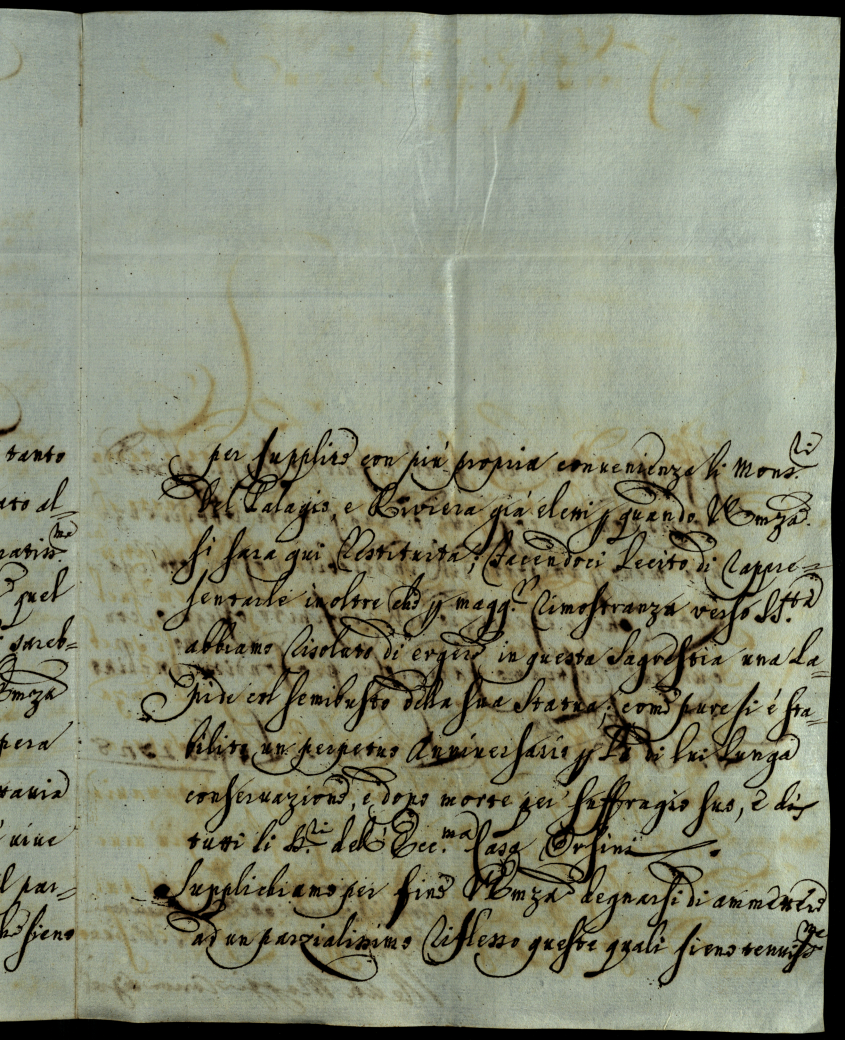 tanto
ato al=
ratiss.ma
quel
sareb=
Emza
pera
tavia
viue
l par=
sieno
per supplire con più propria convenienza li Mons.ri
Del Palagio, e Riviera già eletti p quando V Emza
si sara qui restituita; facendoci lecito di rappre=
sentarle inoltre che p magg.r rimostranza verso S S.tà
abbiamo risoluto di ergere in questa Sagrestia una La=
pide col semibusto della sua Statua; come pure si è sta=
bilito un perpetuo Anniversario p la di lui lunga
conservazione, e dopo morte per suffragio suo, e di
tutti li SS.ri dell' Ecc.ma Casa Orsini
Supplichiamo per fine V Emza degnarsi di ammettere
ad un parzialissimo riflesso queste quali sieno tenuiss.me